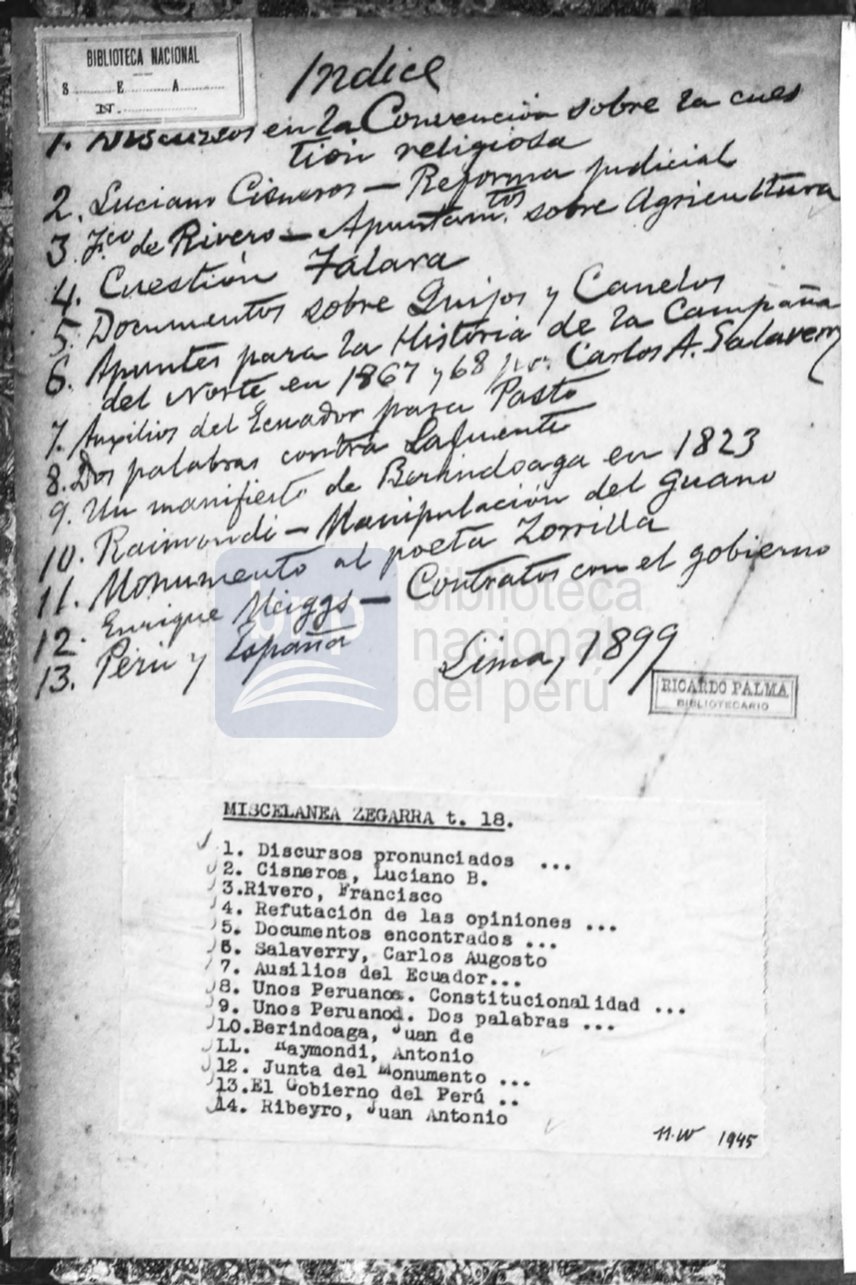 BIBLIOTECA NACIONAL
S E A
N.
Indice
1. Discursos en la Convención sobre la cues
tión religiosa
2. Luciano Cisneros — Reforma judicial
3. Fco de Rivero — Apuntamtos sobre Agricultura
4. Cuestión Talara
5. Documentos sobre Quijos y Canelos
6. Apuntes para la Historia de la Campaña
del Norte en 1867 y 68 por Carlos A. Salaverry
7. Auxilios del Ecuador para Pasto
8. Dos palabras contra Lafuente
9. Un manifiesto de Berindoaga en 1823
10. Raimondi — Manipulación del guano
11. Monumento al poeta Zorrilla
12. Enrique Meiggs — Contratos con el gobierno
13. Perú y España
Lima, 1899
RICARDO PALMA
BIBLIOTECARIO
bnp
biblioteca
nacional
del perú
MISCELANEA ZEGARRA t. 18.
1. Discursos pronunciados ...
2. Cisneros, Luciano B.
3.Rivero, Francisco
4. Refutación de las opiniones ...
5. Documentos encontrados ...
6. Salaverry, Carlos Augosto
7. Ausilios del Ecuador...
8. Unos Peruanos. Constitucionalidad ...
9. Unos Peruanod. Dos palabras ...
10.Berindoaga, Juan de
11. Raymondi, Antonio
12. Junta del Monumento ...
13.El Gobierno del Perú ..
14. Ribeyro, Juan Antonio
1945